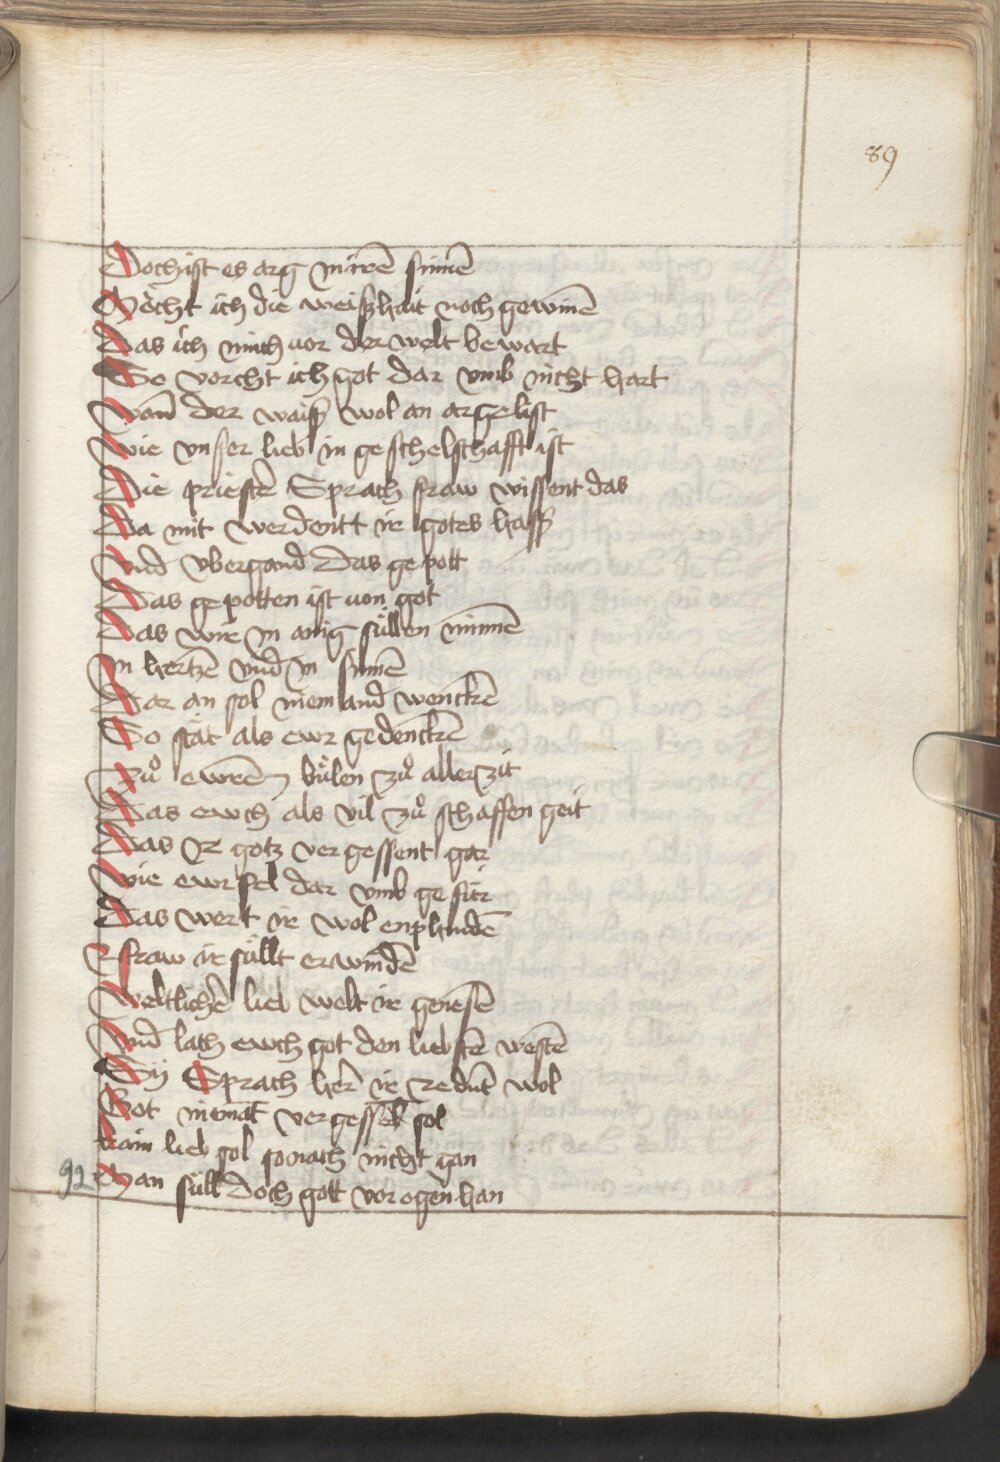 89
Doch ist es arg in irē sinnē
Möcht ich die weißhait noch gewinē
Das ich mich uor der welt bewart
So vorcht ich got dar vmb nicht hart
Wan̄ der waiß wol an argelist
Wie vnser lieb in geschelschafft ist
Die priestē Sprach fraw wissent das
Da mit werdentt ir gotes haß
Vnd vbergand das gepott
Das gepotten ist uon got
Das wir in ainig süllen minnē
In hertzē vnd in sinnē
Dar an sol niemland wenckē
So stät als ewr gedenckē
Zuͦ ewrē bůlen zuͦ aller zit
Das ewch als vil zuͦ schaffen geit
Das Ir gotz vergessent gar
Wie ewr sel dar vmb gefar
Das wert ir wol enphindē
Ir fraw ir süllt erwindē
Weltlichē lieb welt ir genesē
Vnd lath ewch got den liebstē wesen
Sy Sprach her ir redūt wol
Got niemāt vergessen sol
kain lieb sol sonach nicht gan
92 Man süll doch gott vor ogen han